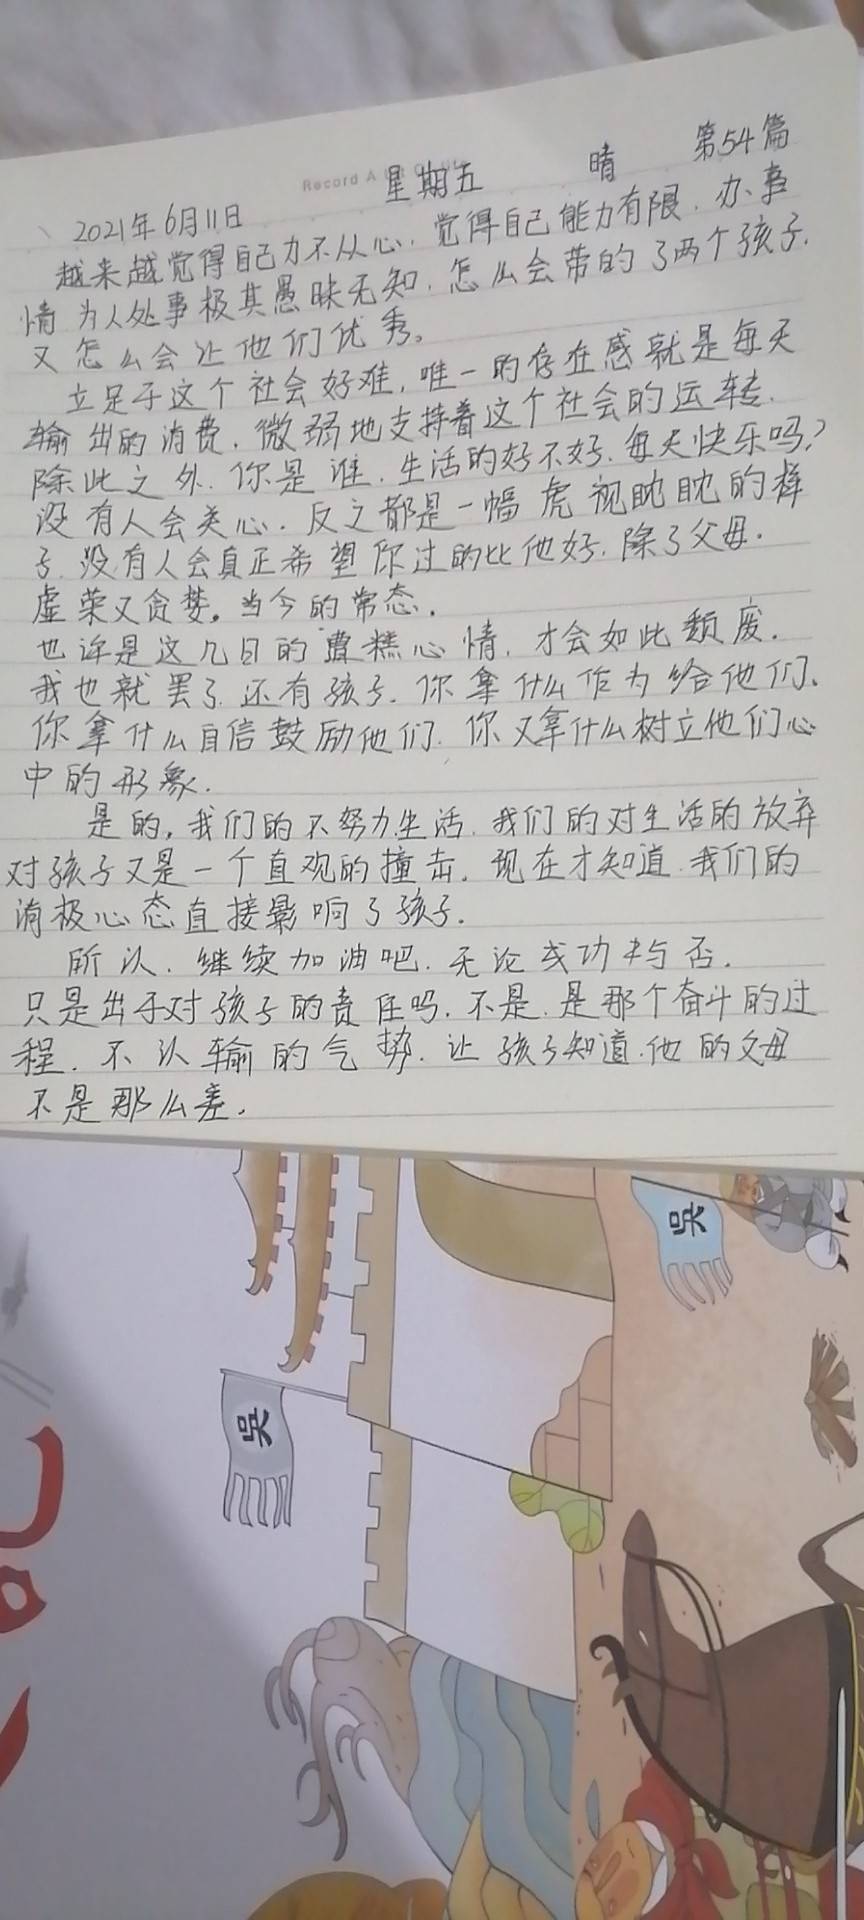 Record A
星期五 晴 第54篇
2021年6月11日
越来越觉得自己力不从心.觉得自己能力有限.办事
情为人处事极其愚昧无知.怎么会带的了两个孩子.
又怎么会让他们优秀。
立足于这个社会好难,唯一的存在感就是每天
输出的消费.微弱地支持着这个社会的运转.
除此之外.你是谁.生活的好不好.每天快乐吗?
没有人会关心.反之都是一幅虎视眈眈的样
子.没有人会真正希望你过的比他好.除了父母.
虚荣又贪婪。当今的常态.
也许是这几日的糟糕心情.才会如此颓废.
我也就罢了.还有孩子.你拿什么作为给他们.
你拿什么自信鼓励他们.你又拿什么树立他们心
中的形象.
是的,我们的不努力生活.我们的对生活的放弃
对孩子又是一个直观的撞击.现在才知道.我们的
消极心态直接影响了孩子.
所以.继续加油吧.无论成功与否.
只是出于对孩子的责任吗.不是.是那个奋斗的过
程.不认输的气势.让孩子知道.他的父母
不是那么差.
吴
吴